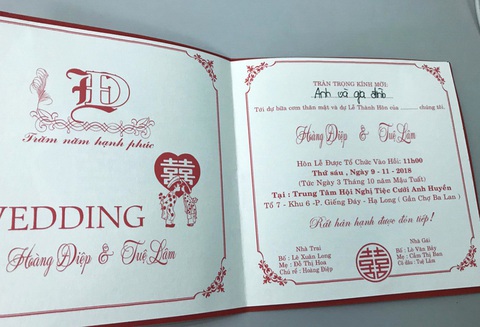 HĐ
Trăm năm hạnh phúc
囍
WEDDING
Hoàng Điệp & Tuệ Lâm
TRÂN TRỌNG KÍNH MỜI:
Anh và gia đình
Tới dự bữa cơm thân mật và dự Lễ Thành Hôn của .......... chúng tôi.
Hoàng Điệp & Tuệ Lâm
Hôn Lễ Được Tổ Chức Vào Hồi: 11h00
Thứ sáu, Ngày 9 - 11 - 2018
(Tức Ngày 3 Tháng 10 năm Mậu Tuất)
Tại : Trung Tâm Hội Nghị Tiệc Cưới Anh Huyền
Tổ 7 - Khu 6 -P. Giếng Đáy - Hạ Long ( Gần Chợ Ba Lan )
Rất hân hạnh được đón tiếp!
Nhà Trai
Bố : Lê Xuân Long
Mẹ : Đỗ Thị Hoa
Chú rể : Hoàng Điệp
囍
Nhà Gái
Bố : Lò Văn Bảy
Mẹ : Cầm Thị Ban
Cô dâu : Tuệ Lâm